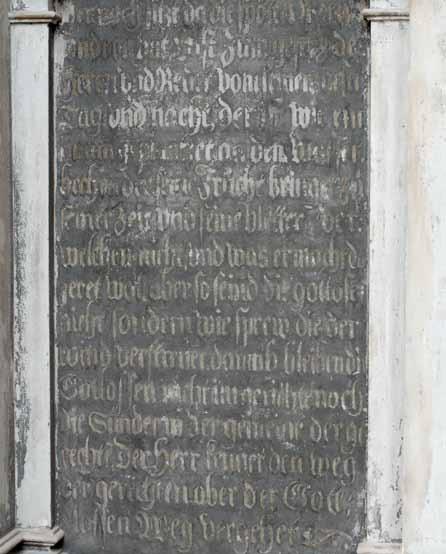 noch sitzt da die spötter
hat lust zum des
Herrn und Redet von seinem
Tag und nacht, der ist wie ein
an den wasser
der seyn früchte bringet zu
seiner Zeyt und seine bletter der
welken nicht und was er macht
geret wol, aber so sind die gottlose
nicht sondern wie sprew die der
wind verstrewet darumb bleiben
Gottlosen nicht im gerichte noch
die Sunder in der gemeine der ge
rechte Den der Herr kennet den weg
der gerechten aber der Gott
losen Weg vergehet